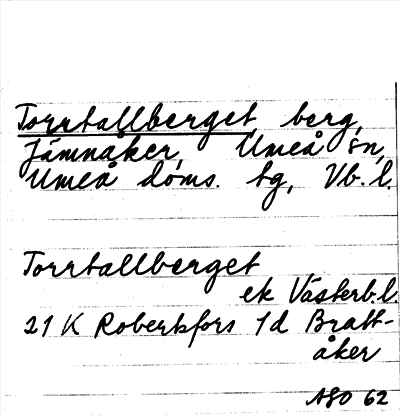 Torrtallberget, berg,
Jämnåker, Umeå sn,
Umeå doms. tg, Vb. l.
Torrtallberget
ek Västerb.l.
21 K Robertsfors 1d Bratt-
åker
ASO 62